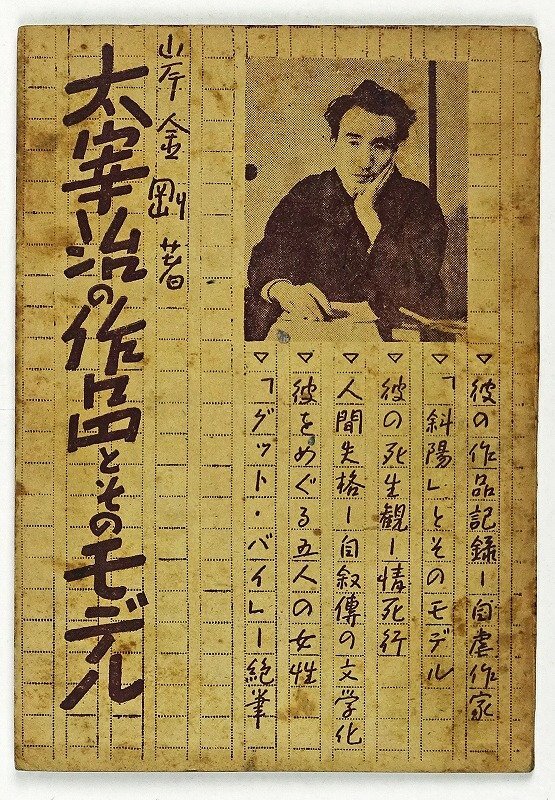 岸金剛著
太宰治の作品とそのモデル
▽彼の作品記録ー自虐作家
▽「斜陽」とそのモデル
▽彼の死生観ー情死行
▽人間失格ー自叙傳の文学化
▽彼をめぐる五人の女性
▽「グット・バイ」ー絶筆